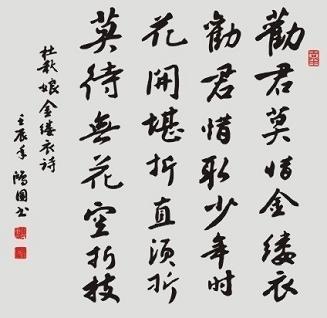 勸君莫惜金缕衣
勸君惜取少年时
花開堪折直须折
莫待無花空折枝
杜秋娘金缕衣詩
壬辰年鴻國书